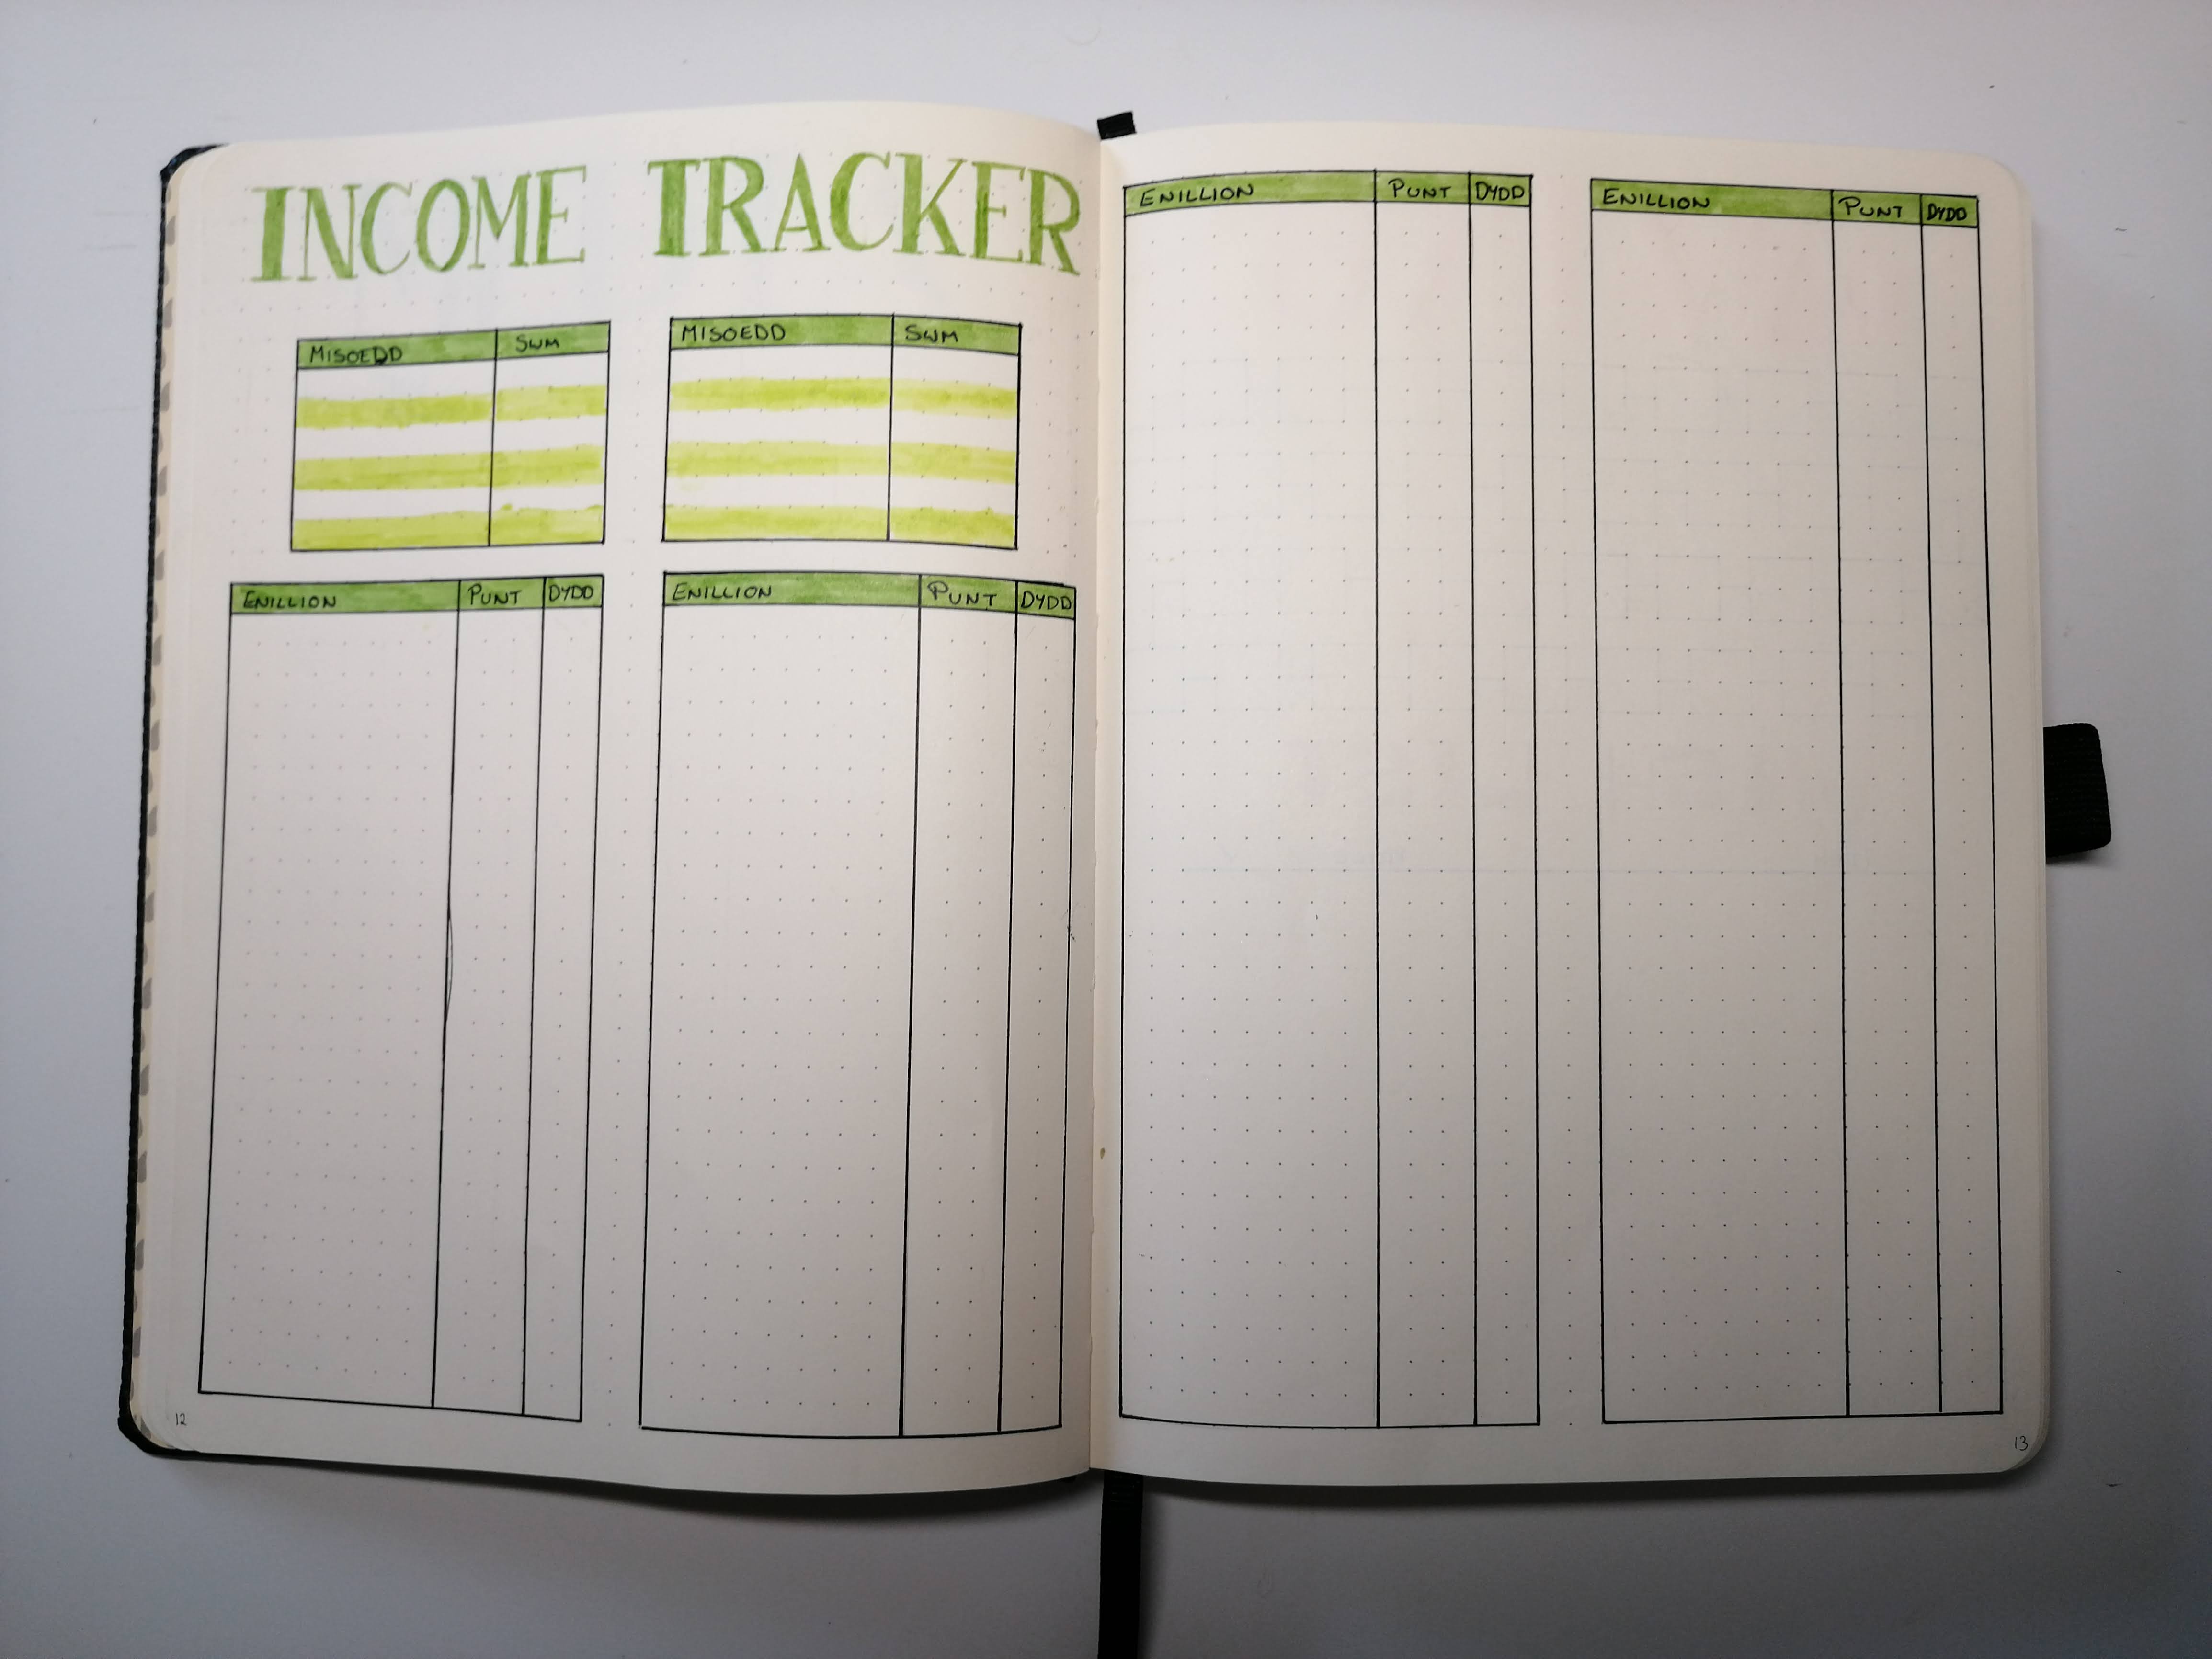 INCOME TRACKER
MISOEDD SWM
MISOEDD SWM
ENILLION PUNT DYDD
ENILLION PUNT DYDD
12
ENILLION PUNT DYDD
ENILLION PUNT DYDD
13